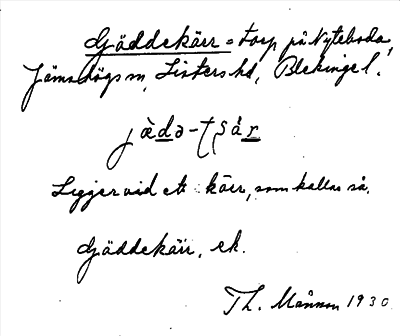 Gäddekärr = torp på Nyteboda,
Jämshögs sn, Listers hd, Blekinge l.
jæ̀də-tʃár
Ligger vid ett kärr, som kallas så.
Gäddekärr, ek.
Th. Månsson 1930